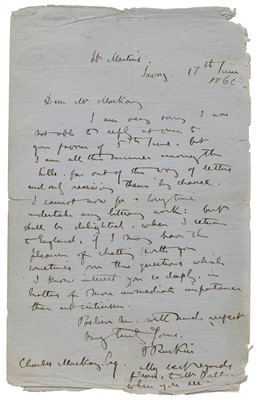 St Martins,
Savoy. 17th June
186
Dear Mr Mackay,
I am very sorry I was
not able to reply at once to
your favour of 5th June, but
I am all this summer among the
hills, far out of the way of letters
and only receiving them by chance.
I cannot now for a long time
undertake any literary work; but
shall be delighted, when I return
to England, if I may have the
pleasure of chatting with you
sometimes over the questions which
I know interest you so deeply, in
matters of more immediate importance
than art criticism.
Believe me with much respect
Very truly Yours.
J Ruskin
Charles Mackay Esq.
My best regards
when you see